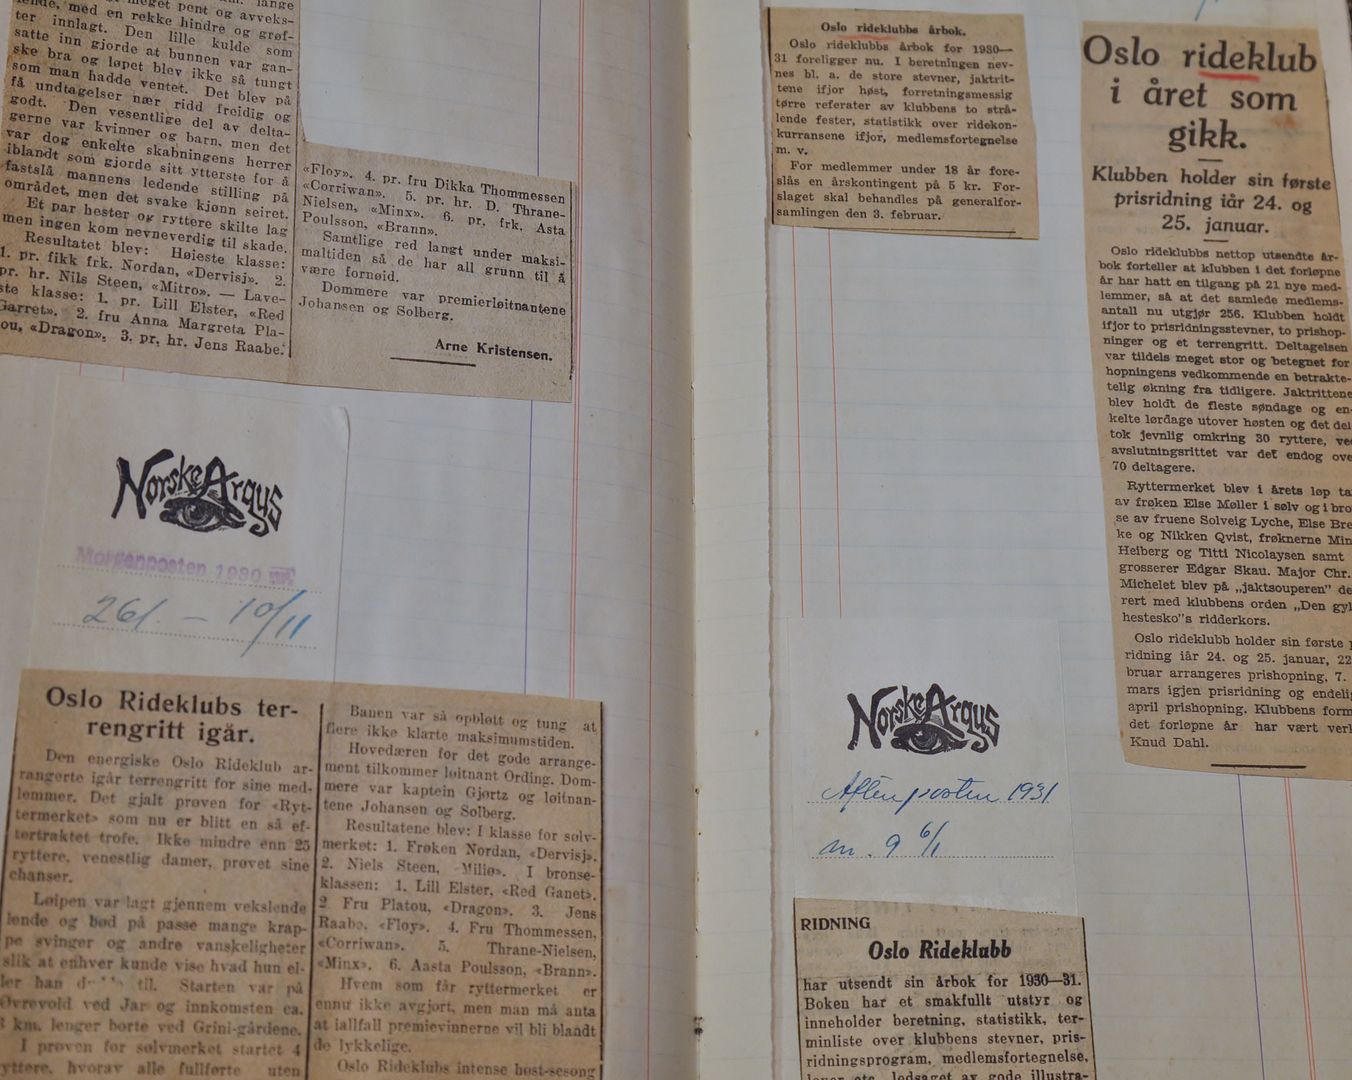 meget pent og avveks-
lende, med en rekke hindre og grøf-
ter innlagt. Den lille kulde som
satte inn gjorde at bunnen var gan-
ske bra og løpet blev ikke så tungt
som man hadde ventet. Det blev på
få undtagelser nær ridd freidig og
godt. Den vesentlige del av delta-
gerne var kvinner og barn, men det
var dog enkelte skabningens herrer
iblandt som gjorde sitt ytterste for å
fastslå mannens ledende stilling på
området, men det svake kjønn seiret.
Et par hester og ryttere skilte lag
men ingen kom nevneverdig til skade.
Resultatet blev: Høieste klasse:
1. pr. fikk frk. Nordan, «Dervisj». 2.
pr. hr. Nils Steen, «Mitro». — Lave-
ste klasse: 1. pr. Lill Elster, «Red
Garret». 2. fru Anna Margreta Pla-
tou, «Dragon». 3. pr. hr. Jens Raabe.
«Floy». 4. pr. fru Dikka Thommessen
«Corriwan». 5. pr. hr. D. Thrane-
Nielsen, «Minx». 6. pr. frk. Asta
Poulsson, «Brann».
Samtlige red langt under maksi-
maltiden så de har all grunn til å
være fornøid.
Dommere var premierløitnantene
Johansen og Solberg.
Arne Kristensen.
Norske Argus
Morgenposten 1930
261. – 10/11
Oslo Rideklubs ter-
rengritt igår.
Den energiske Oslo Rideklub ar-
rangerte igår terrengritt for sine med-
lemmer. Det gjalt prøven for «Ryt-
termerket» som nu er blitt en så ef-
tertraktet trofe. Ikke mindre enn 25
ryttere, venestlig damer, prøvet sine
chanser.
Løipen var lagt gjennem vekslende
lende og bød på passe mange krap-
pe svinger og andre vanskeligheter
slik at enhver kunde vise hvad hun el-
ler han til. Starten var på
Øvrevold ved Jar og innkomsten ca.
8 km. lenger borte ved Grini-gårdene.
I prøven for sølvmerket startet 4
ryttere, hvorav alle fullførte uten
Banen var så opbløtt og tung at
flere ikke klarte maksimumstiden.
Hovedæren for det gode arrange-
ment tilkommer løitnant Ording. Dom-
mere var kaptein Gjørtz og løitnan-
tene Johansen og Solberg.
Resultatene blev: I klasse for sølv-
merket: 1. Frøken Nordan, «Dervisj».
2. Niels Steen, Milio». I bronse-
klassen: 1. Lill Elster, «Red Ganet».
2 Fru Platou, «Dragon». 3. Jens
Raabe, «Floy». 4. Fru Thommessen,
«Corriwan». 5. Thrane-Nielsen,
«Minx». 6. Aasta Poulsson, «Brann».
Hvem som får ryttermerket er
ennu ikke avgjort, men man må anta
at iallfall premievinnerne vil bli blandt
de lykkelige.
Oslo Rideklubs intense høst-sesong
Oslo rideklubbs årbok.
Oslo rideklubbs årbok for 1930—
31 foreligger nu. I beretningen nev-
nes bl. a. de store stevner, jaktrit-
tene ifjor høst, forretningsmessig
tørre referater av klubbens to strå-
lende fester, statistikk over ridekon-
kurransene ifjor, medlemsfortegnelse
m. v.
For medlemmer under 18 år fore-
slås en årskontingent på 5 kr. For-
slaget skal behandles på generalfor-
samlingen den 3. februar.
Norske Argus
Aftenposten 1931
nr. 9 6/1
RIDNING
Oslo Rideklubb
har utsendt sin årbok for 1930—31.
Boken har et smakfullt utstyr og
inneholder beretning, statistikk, ter-
minliste over klubbens stevner, pris-
ridningsprogram, medlemsfortegnelse,
loner etc. ledsaget av gode illustra-
Oslo rideklub
i året som
gikk.
Klubben holder sin første
prisridning iår 24. og
25. januar.
Oslo rideklubbs nettop utsendte år-
bok forteller at klubben i det forløpne
år har hatt en tilgang på 21 nye med-
lemmer, så at det samlede medlems-
antall nu utgjør 256. Klubben holdt
ifjor to prisridningsstevner, to prishop-
ninger og et terrengritt. Deltagelsen
var tildels meget stor og betegnet for
hopningens vedkommende en betrakte-
telig økning fra tidligere. Jaktrittene
blev holdt de fleste søndage og en-
kelte lørdage utover høsten og det del
tok jevnlig omkring 30 ryttere, ved
avslutningsrittet var det endog ove
70 deltagere.
Ryttermerket blev i årets løp ta
av frøken Else Møller i sølv og i bro
se av fruene Solveig Lyche, Else Bre
ke og Nikken Qvist, frøknerne Min
Heiberg og Titti Nicolaysen samt
grosserer Edgar Skau. Major Chr.
Michelet blev på „jaktsouperen" de
rert med klubbens orden „Den gyl
hestesko"s ridderkors.
Oslo rideklubb holder sin første p
ridning iår 24. og 25. januar, 22
bruar arrangeres prishopning, 7.
mars igjen prisridning og endelig
april prishopning. Klubbens form
det forløpne år har vært verk
Knud Dahl.